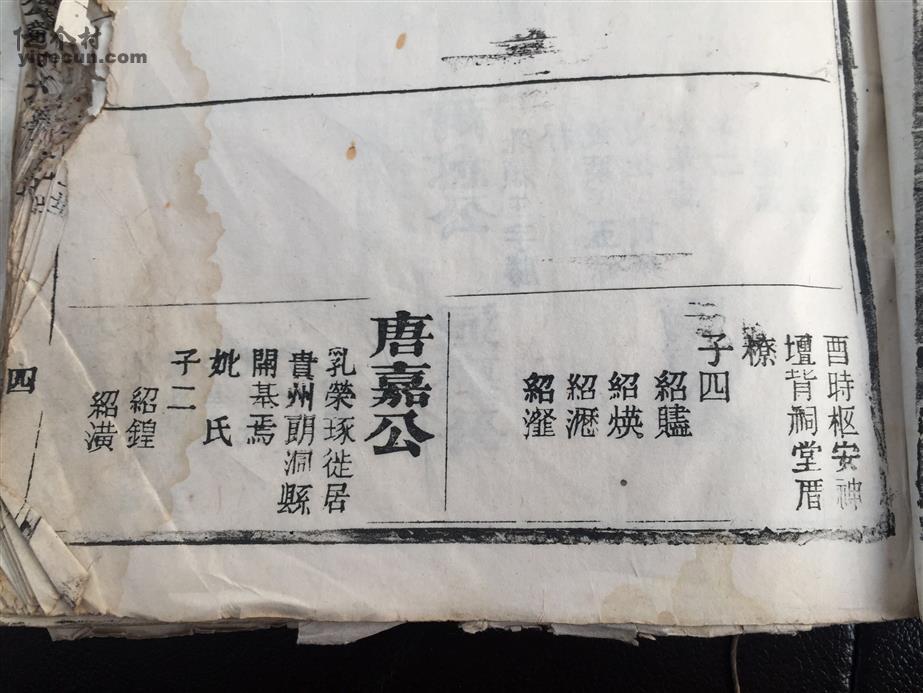 酉時柩安神
壇背祠堂厝
橑
子四
紹贐
紹煐
紹濹
紹漄
唐嘉公
乳榮琢徙居
貴州朗洞縣
開基焉
妣氏
子二
紹鍠
紹潢
四
一个村
yigecun.com